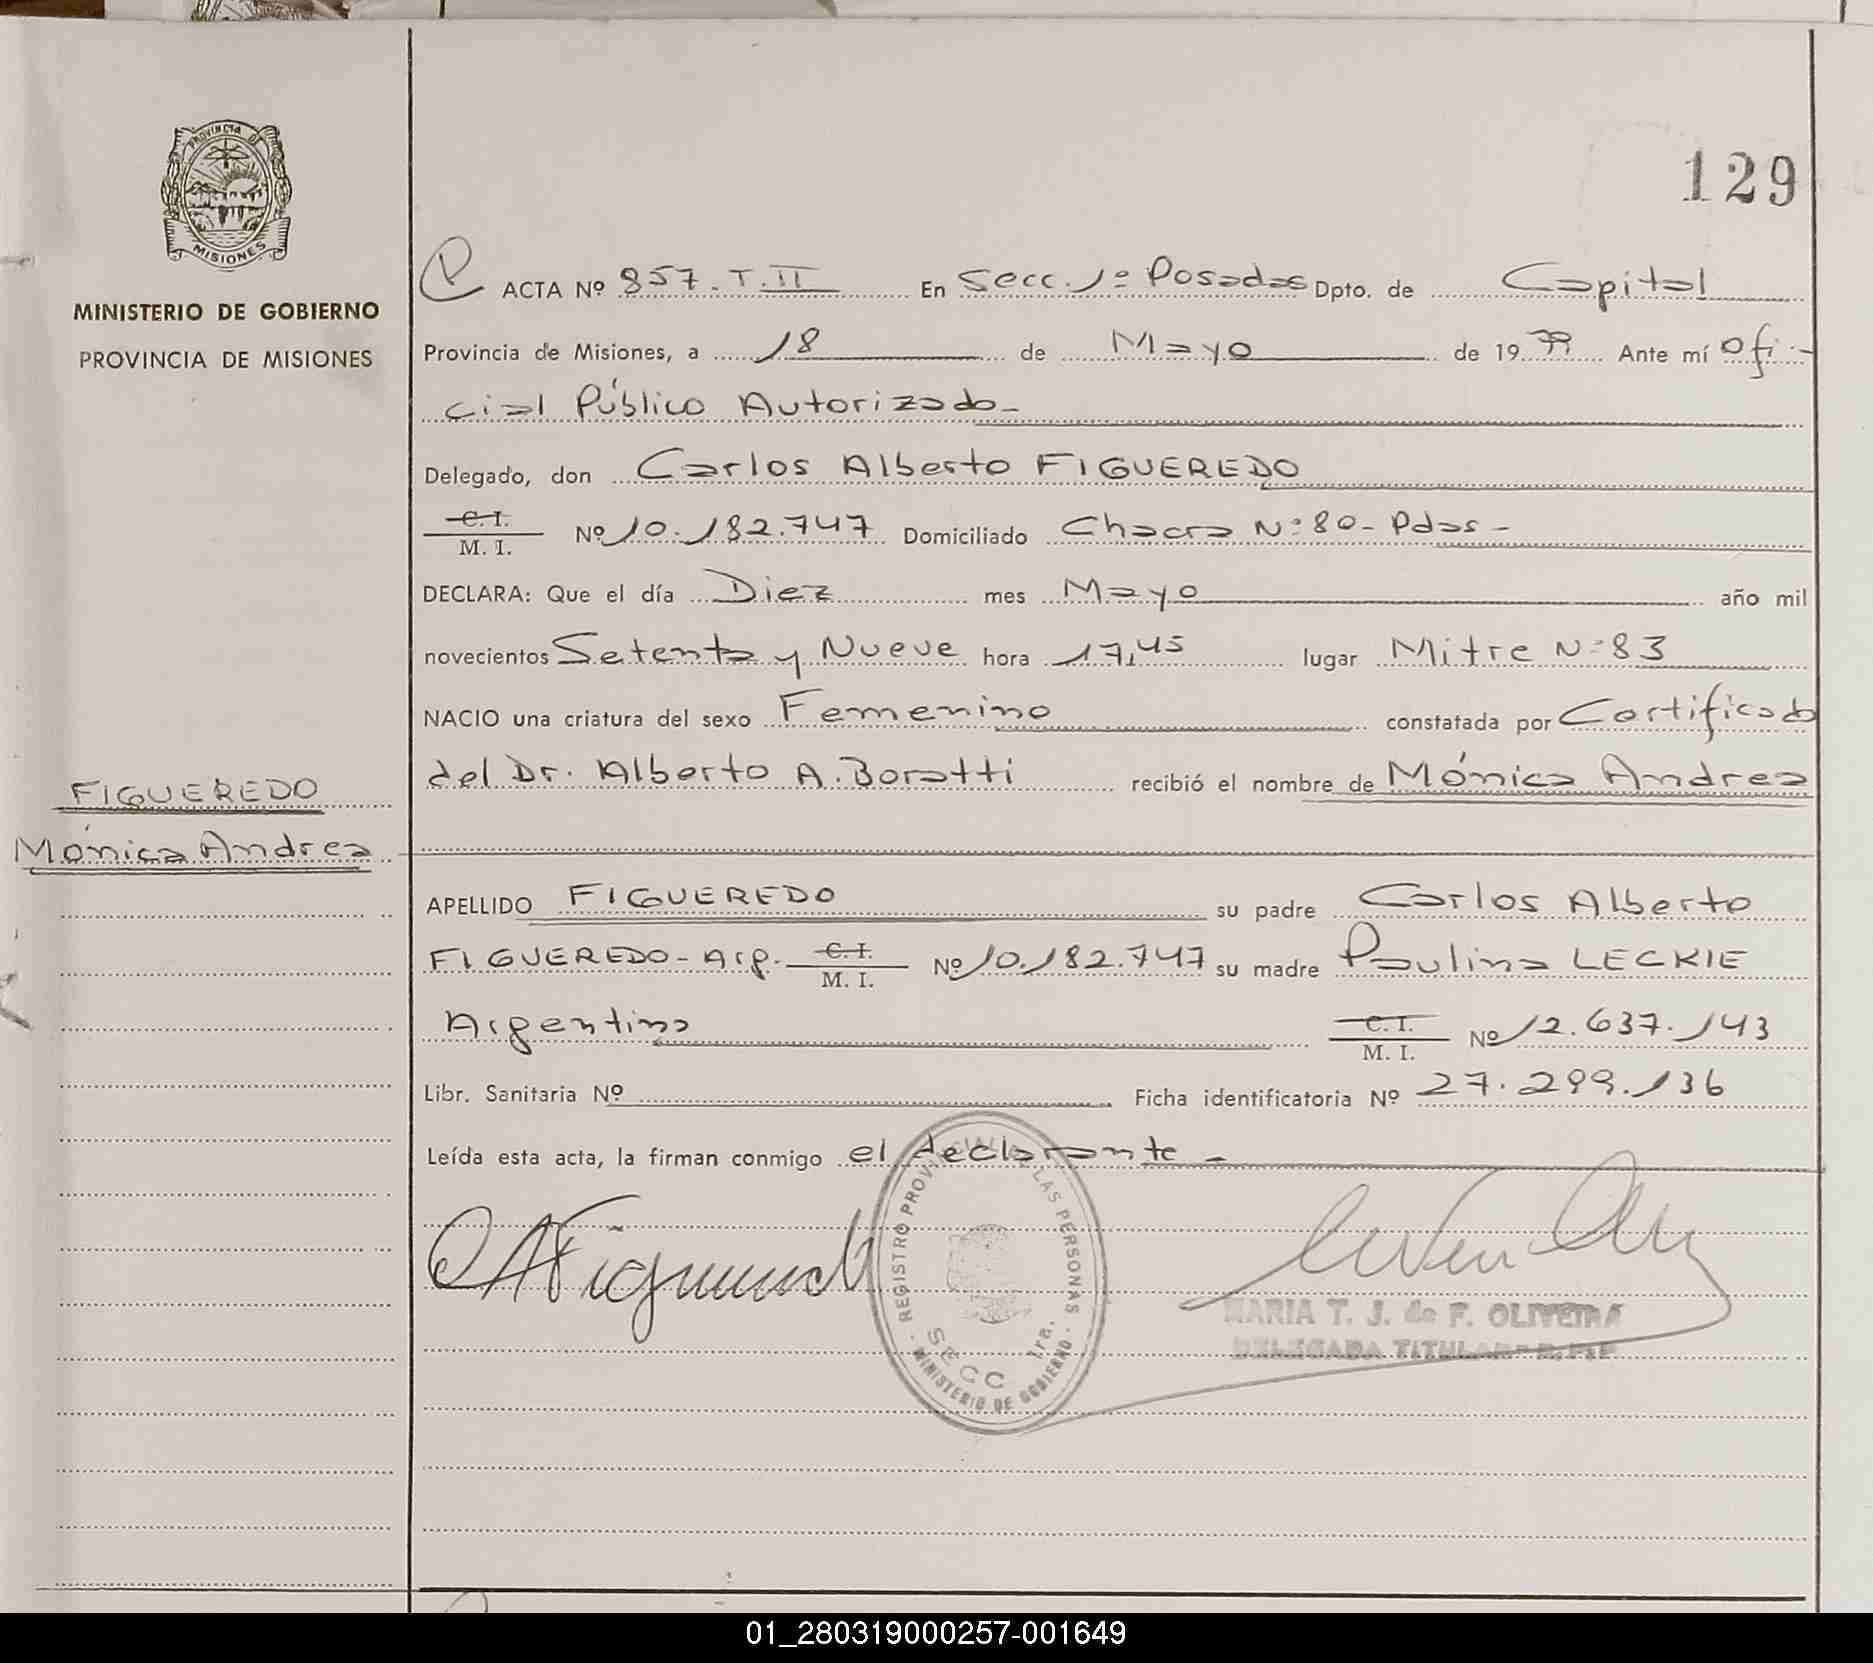 PROVINCIA DE
MISIONES
MINISTERIO DE GOBIERNO
PROVINCIA DE MISIONES
FIGUEREDO
Mónica Andrea
129
ACTA Nº 857. T. II En Secc. 1º Posadas Dpto. de Capital
Provincia de Misiones, a 18 de Mayo de 1979 Ante mí Ofi-
cial Público Autorizado-
Delegado, don Carlos Alberto FIGUEREDO
C. I.
M. I. Nº 10.182.747 Domiciliado Chacra Nº 80- Pdas-
DECLARA: Que el día Diez mes Mayo año mil
novecientos Setenta y Nueve hora 17,45 lugar Mitre Nº 83
NACIO una criatura del sexo Femenino constatada por Certificado
del Dr. Alberto A. Boratti recibió el nombre de Mónica Andrea
APELLIDO FIGUEREDO su padre Carlos Alberto
FIGUEREDO- Arg. C. I.
M. I. Nº 10.182.747 su madre Paulina LECKIE
Argentina C. I.
M. I. Nº 12.637.143
Libr. Sanitaria Nº Ficha identificatoria Nº 27.299.136
Leída esta acta, la firman conmigo el declarante -
REGISTRO PROVINCIAL DE LAS PERSONAS
SECC 1ra.
MINISTERIO DE GOBIERNO
MARIA T. J. de F. OLIVEIRA
DELEGADA TITULAR
01_280319000257-001649